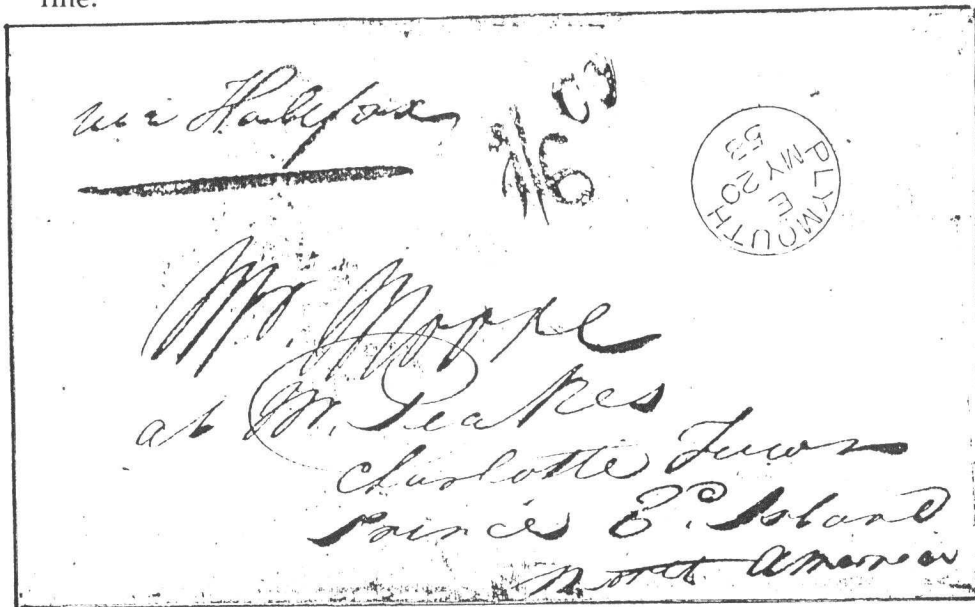 line.
via Halifax
PLYMOUTH
E
MY 20
53
Mr. Moppe
at Mr. Peakes
Charlotte Town
Prince Ed. Island
North America